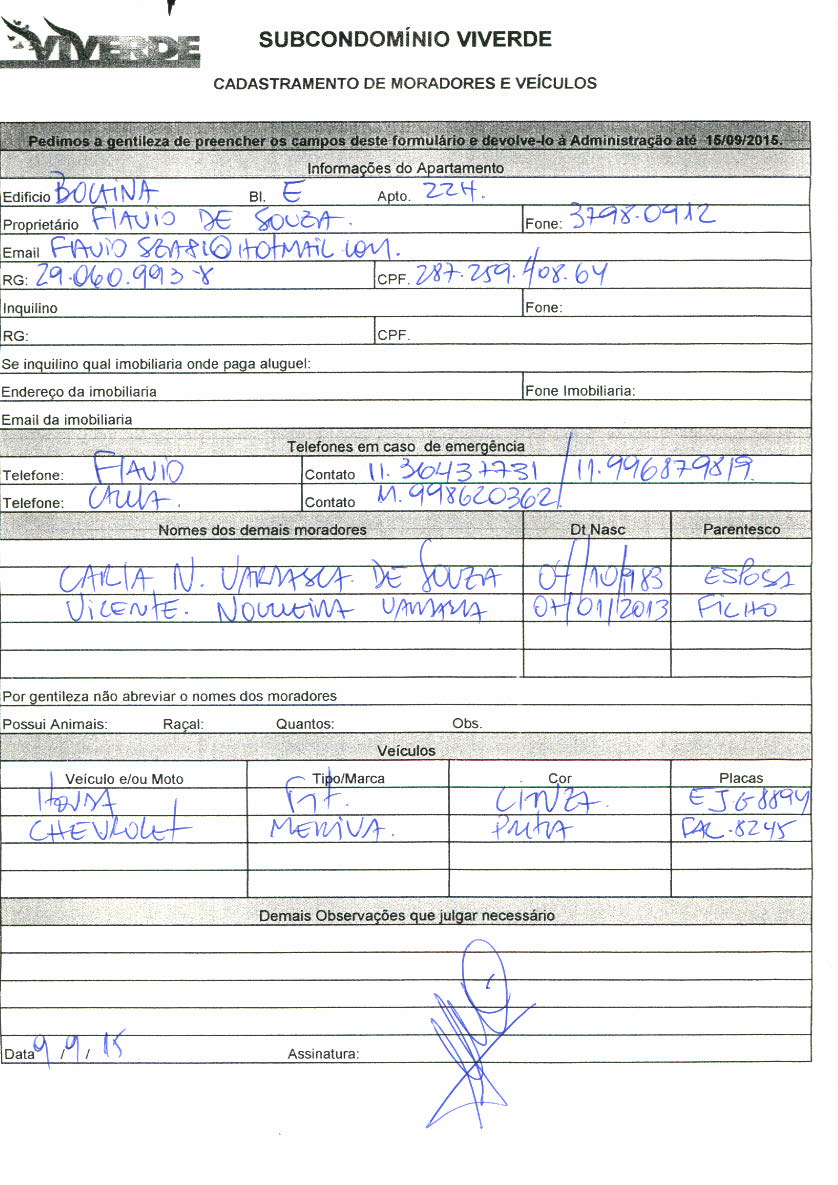 VIVERDE
SUBCONDOMÍNIO VIVERDE
CADASTRAMENTO DE MORADORES E VEÍCULOS
Pedimos a gentileza de preencher os campos deste formulário e devolve-lo à Administração até 15/09/2015.
Informações do Apartamento
Edificio BOCAINA Bl. E Apto. 224.
Proprietário FLAVIO DE SOUZA. Fone: 3798-0912
Email
RG: 29.060.993-8 CPF. 287.259.408.64
Inquilino Fone:
RG: CPF.
Se inquilino qual imobiliaria onde paga aluguel:
Endereço da imobiliaria Fone Imobiliaria:
Email da imobiliaria
Telefones em caso de emergência
Telefone: FLAVIO Contato 11.36437731 / 11.996879819
Telefone: CARLA. Contato 11.998620362
Nomes dos demais moradores Dt.Nasc Parentesco
CARLA N. DE SOUZA ESPOSA
VICENTE. NOGUEIRA 07/01/2013 FILHO
Por gentileza não abreviar o nomes dos moradores
Possui Animais: Raçal: Quantos: Obs.
Veículos
Veículo e/ou Moto Tipo/Marca Cor Placas
HONDA FIT. CINZA. EJG8894
CHEVROLET MERIVA. PRATA 8245
Demais Observações que julgar necessário
Data 9/9/15 Assinatura: